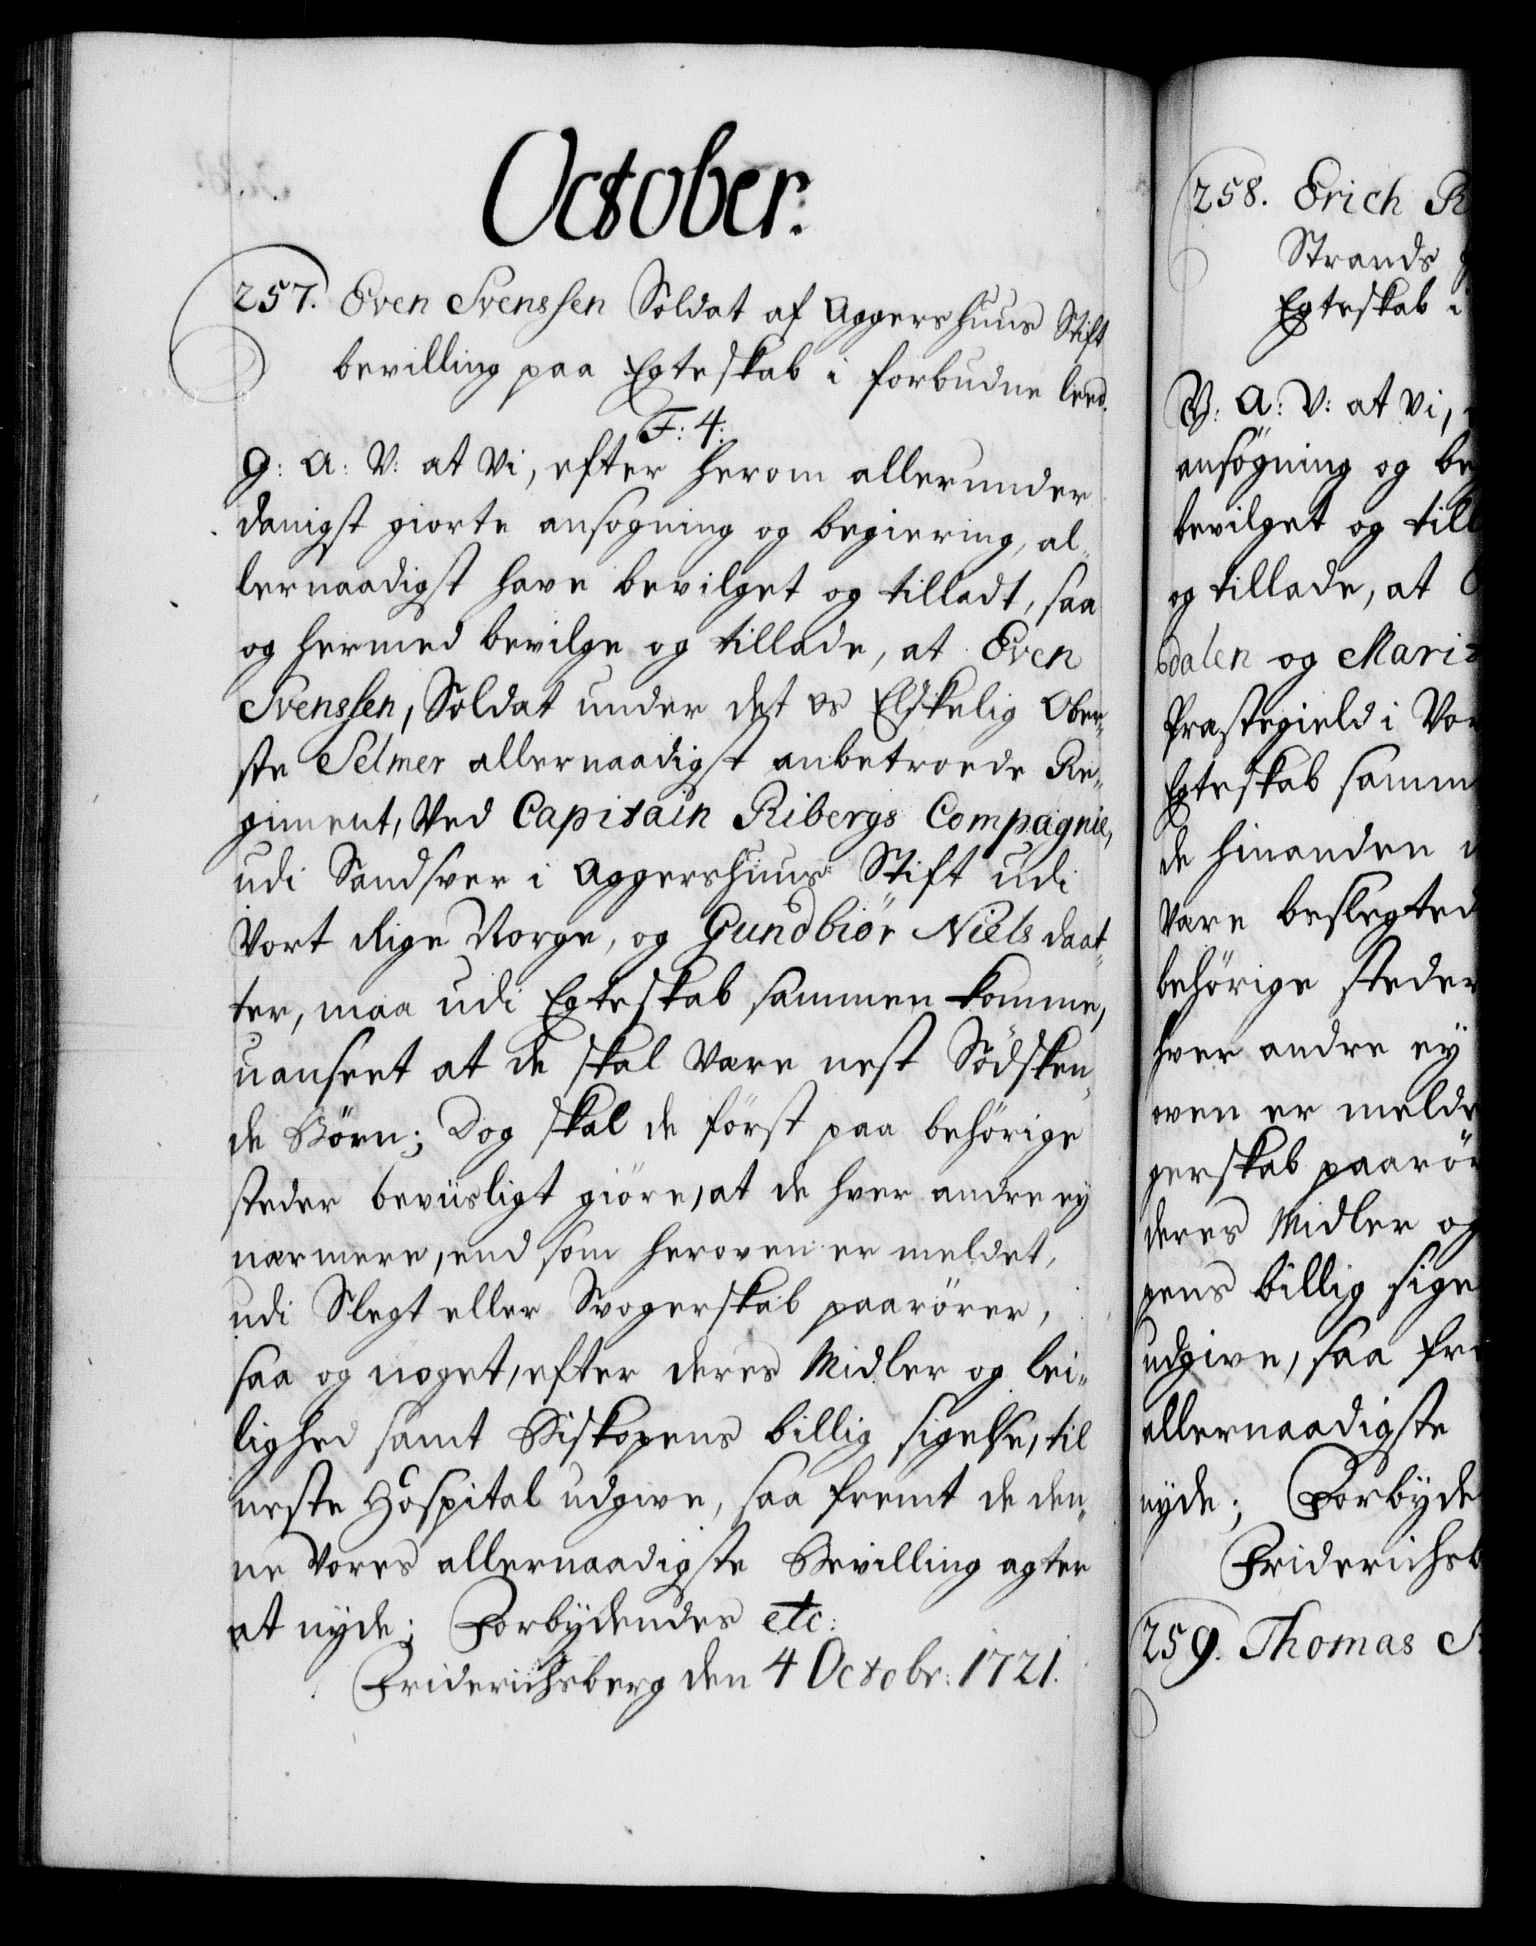 October.
257. Even Svenssen Soldat af Aggershuus Stift
bevilling paa Egteskab i forbudne leed.
F: 4:
G: A: V: at Vi, efter herom allerunder
danigst giorte ansøgning og begiering, al-
lernaadigst have bevilget og tilladt, saa
og hermed bevilge og tillade, at Even
Svenssen, Soldat under det os Elskelig Ober-
ste Selmer allernaadigst anbetroede Re-
giment, Ved Capitain Ribergs Compagnie,
udi Sandsver i Aggershuus Stift udi
Vort Rige Norge, og Gundbiör Niels daat-
ter, maa udi Egteskab sammen komme,
uanseet at de skal Være nest Södsken-
de Börn; Dog skal de först paa behörige
steder beviisligt giöre, at de hver andre ey
nærmere, end som heroven er meldet,
udi Slegt eller Svogerskab paarörer,
saa og noget, efter deres Midler og lei-
lighed samt Biskopens billig sigelse, til
neste Hospital udgive, saa fremt de den-
ne Vores allernaadigste Bevilling agter
at nyde; Forbydendes etc:
Friderichsberg den 4 Octobr: 1721.
258. Erich
Strands
Egteskab i
V: A: V: at Vi,
ansögning og
bevilget og
og tillade, at
dalen og
Præstegield i
Egteskab
de hinanden
Være beslegted
behörige steder
hver andre ey
oven er
gerskab
deres Midler og
pens billig
udgive, saa
allernaadigste
nyde;
259. Thomas